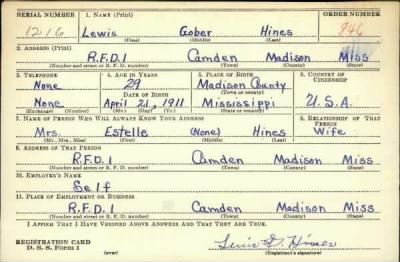 SERIAL NUMBER 1. NAME (Print) ORDER NUMBER
1216 Lewis Gober Hines 946
(First) (Middle) (Last)
2. ADDRESS (Print)
R.F.D.1 Camden Madison Miss
(Number and street or R. F. D. number) (Town) (County) (State)
3. TELEPHONE 4. AGE IN YEARS 5. PLACE OF BIRTH 6. COUNTRY OF CITIZENSHIP
None 29 Madison County
DATE OF BIRTH (Town or county)
None April 21, 1911 Mississippi U.S.A.
(Exchange) (Number) (Mo.) (Day) (Yr.) (State or country)
7. NAME OF PERSON WHO WILL ALWAYS KNOW YOUR ADDRESS 8. RELATIONSHIP OF THAT PERSON
Mrs. Estelle (None) Hines Wife
(Mr., Mrs., Miss) (First) (Middle) (Last)
9. ADDRESS OF THAT PERSON
R.F.D.1 Camden Madison Miss
(Number and street or R. F. D. number) (Town) (County) (State)
10. EMPLOYER'S NAME
Self
11. PLACE OF EMPLOYMENT OR BUSINESS
R.F.D.1 Camden Madison Miss
(Number and street or R. F. D. number) (Town) (County) (State)
I AFFIRM THAT I HAVE VERIFIED ABOVE ANSWERS AND THAT THEY ARE TRUE.
REGISTRATION CARD
D. S. S. Form 1 (over) (Registrant's signature)